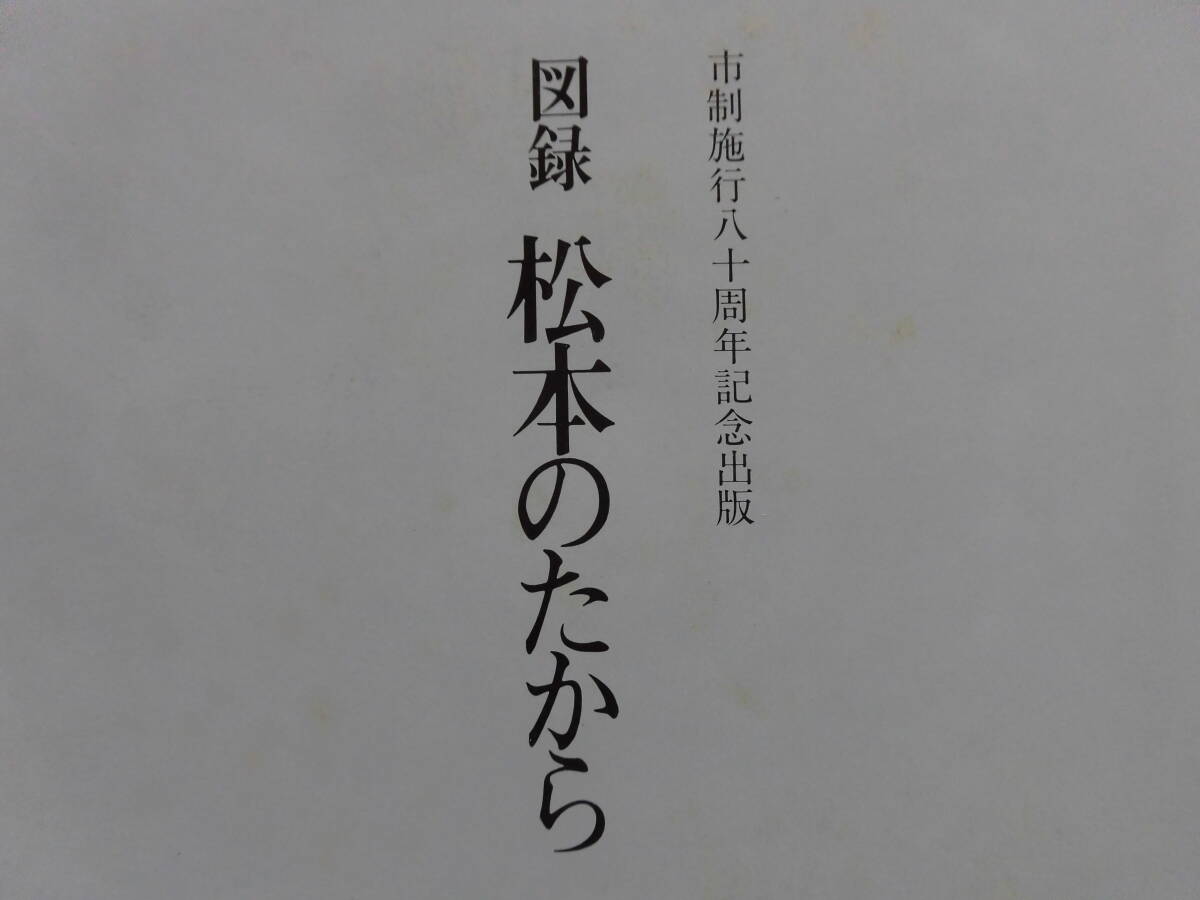 市制施行八十周年記念出版
図録 松本のたから